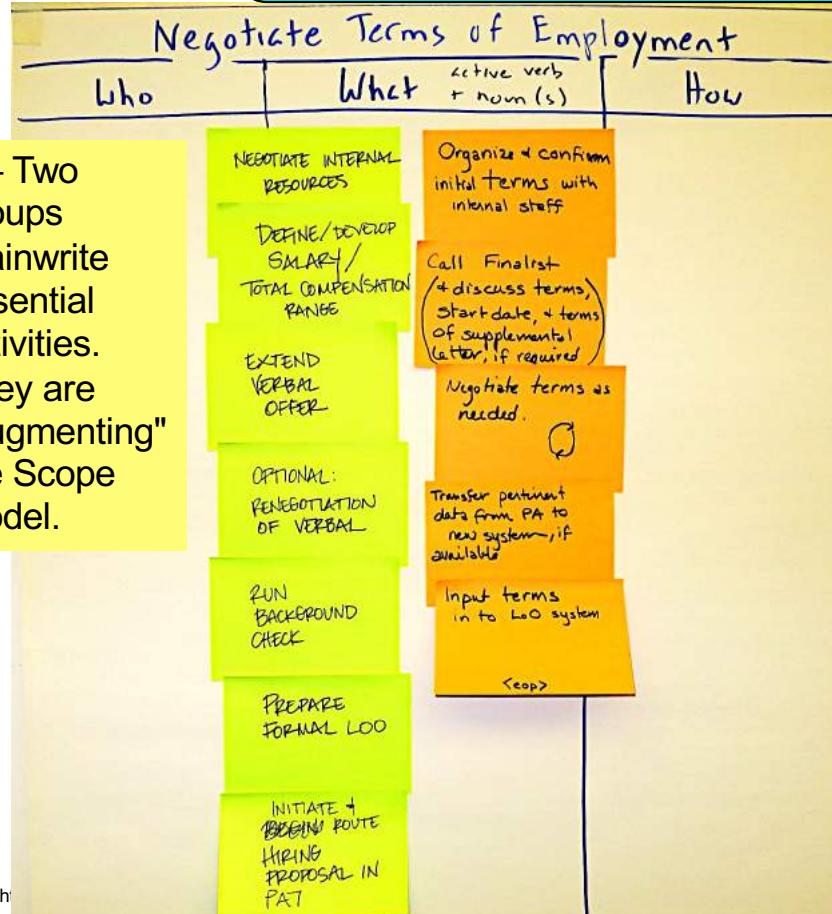 Negotiate Terms of Employment
Who
What
active verb
+ noun(s)
How
- Two
oups
ainwrite
sential
tivities.
ey are
ugmenting"
e Scope
odel.
NEGOTIATE INTERNAL
RESOURCES
DEFINE/DEVELOP
SALARY/
TOTAL COMPENSATION
RANGE
EXTEND
VERBAL
OFFER
OPTIONAL:
RENEGOTIATION
OF VERBAL
RUN
BACKGROUND
CHECK
PREPARE
FORMAL LOO
INITIATE +
ROUTE
HIRING
PROPOSAL IN
PA7
Organize & confirm
initial terms with
internal staff
Call Finalist
(+ discuss terms,
start date, + terms
of supplemental
letter, if required)
Negotiate terms as
needed.
Transfer pertinent
data from PA to
new system, if
available
Input terms
in to LoO system
<eop>
ht